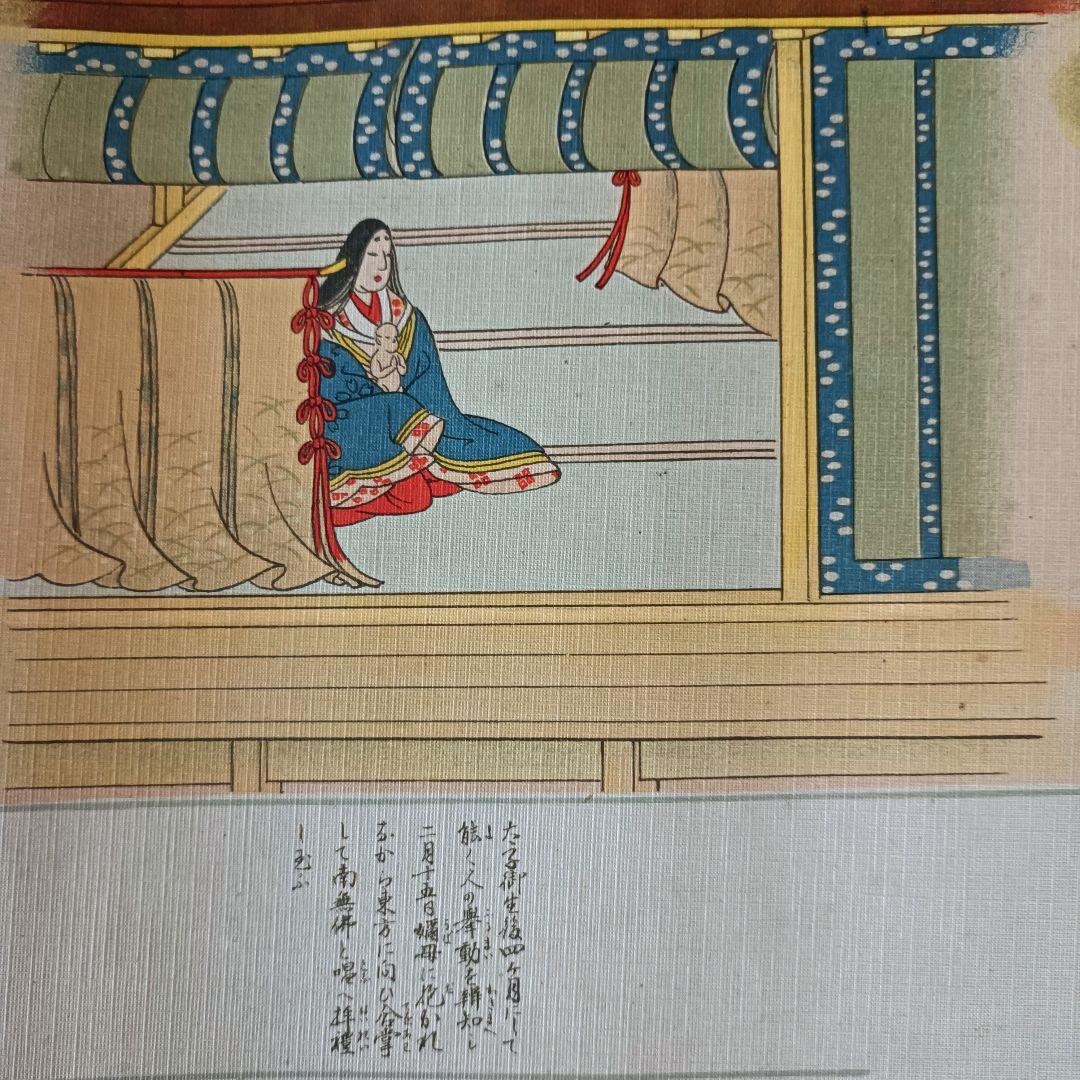 太子御生後四ケ月にして
能く人の擧動を辨知し
二月十五日嬭母に抱かれ
ながら東方に向ひ合掌
して南無佛と唱へ拝禮
し玉ふ